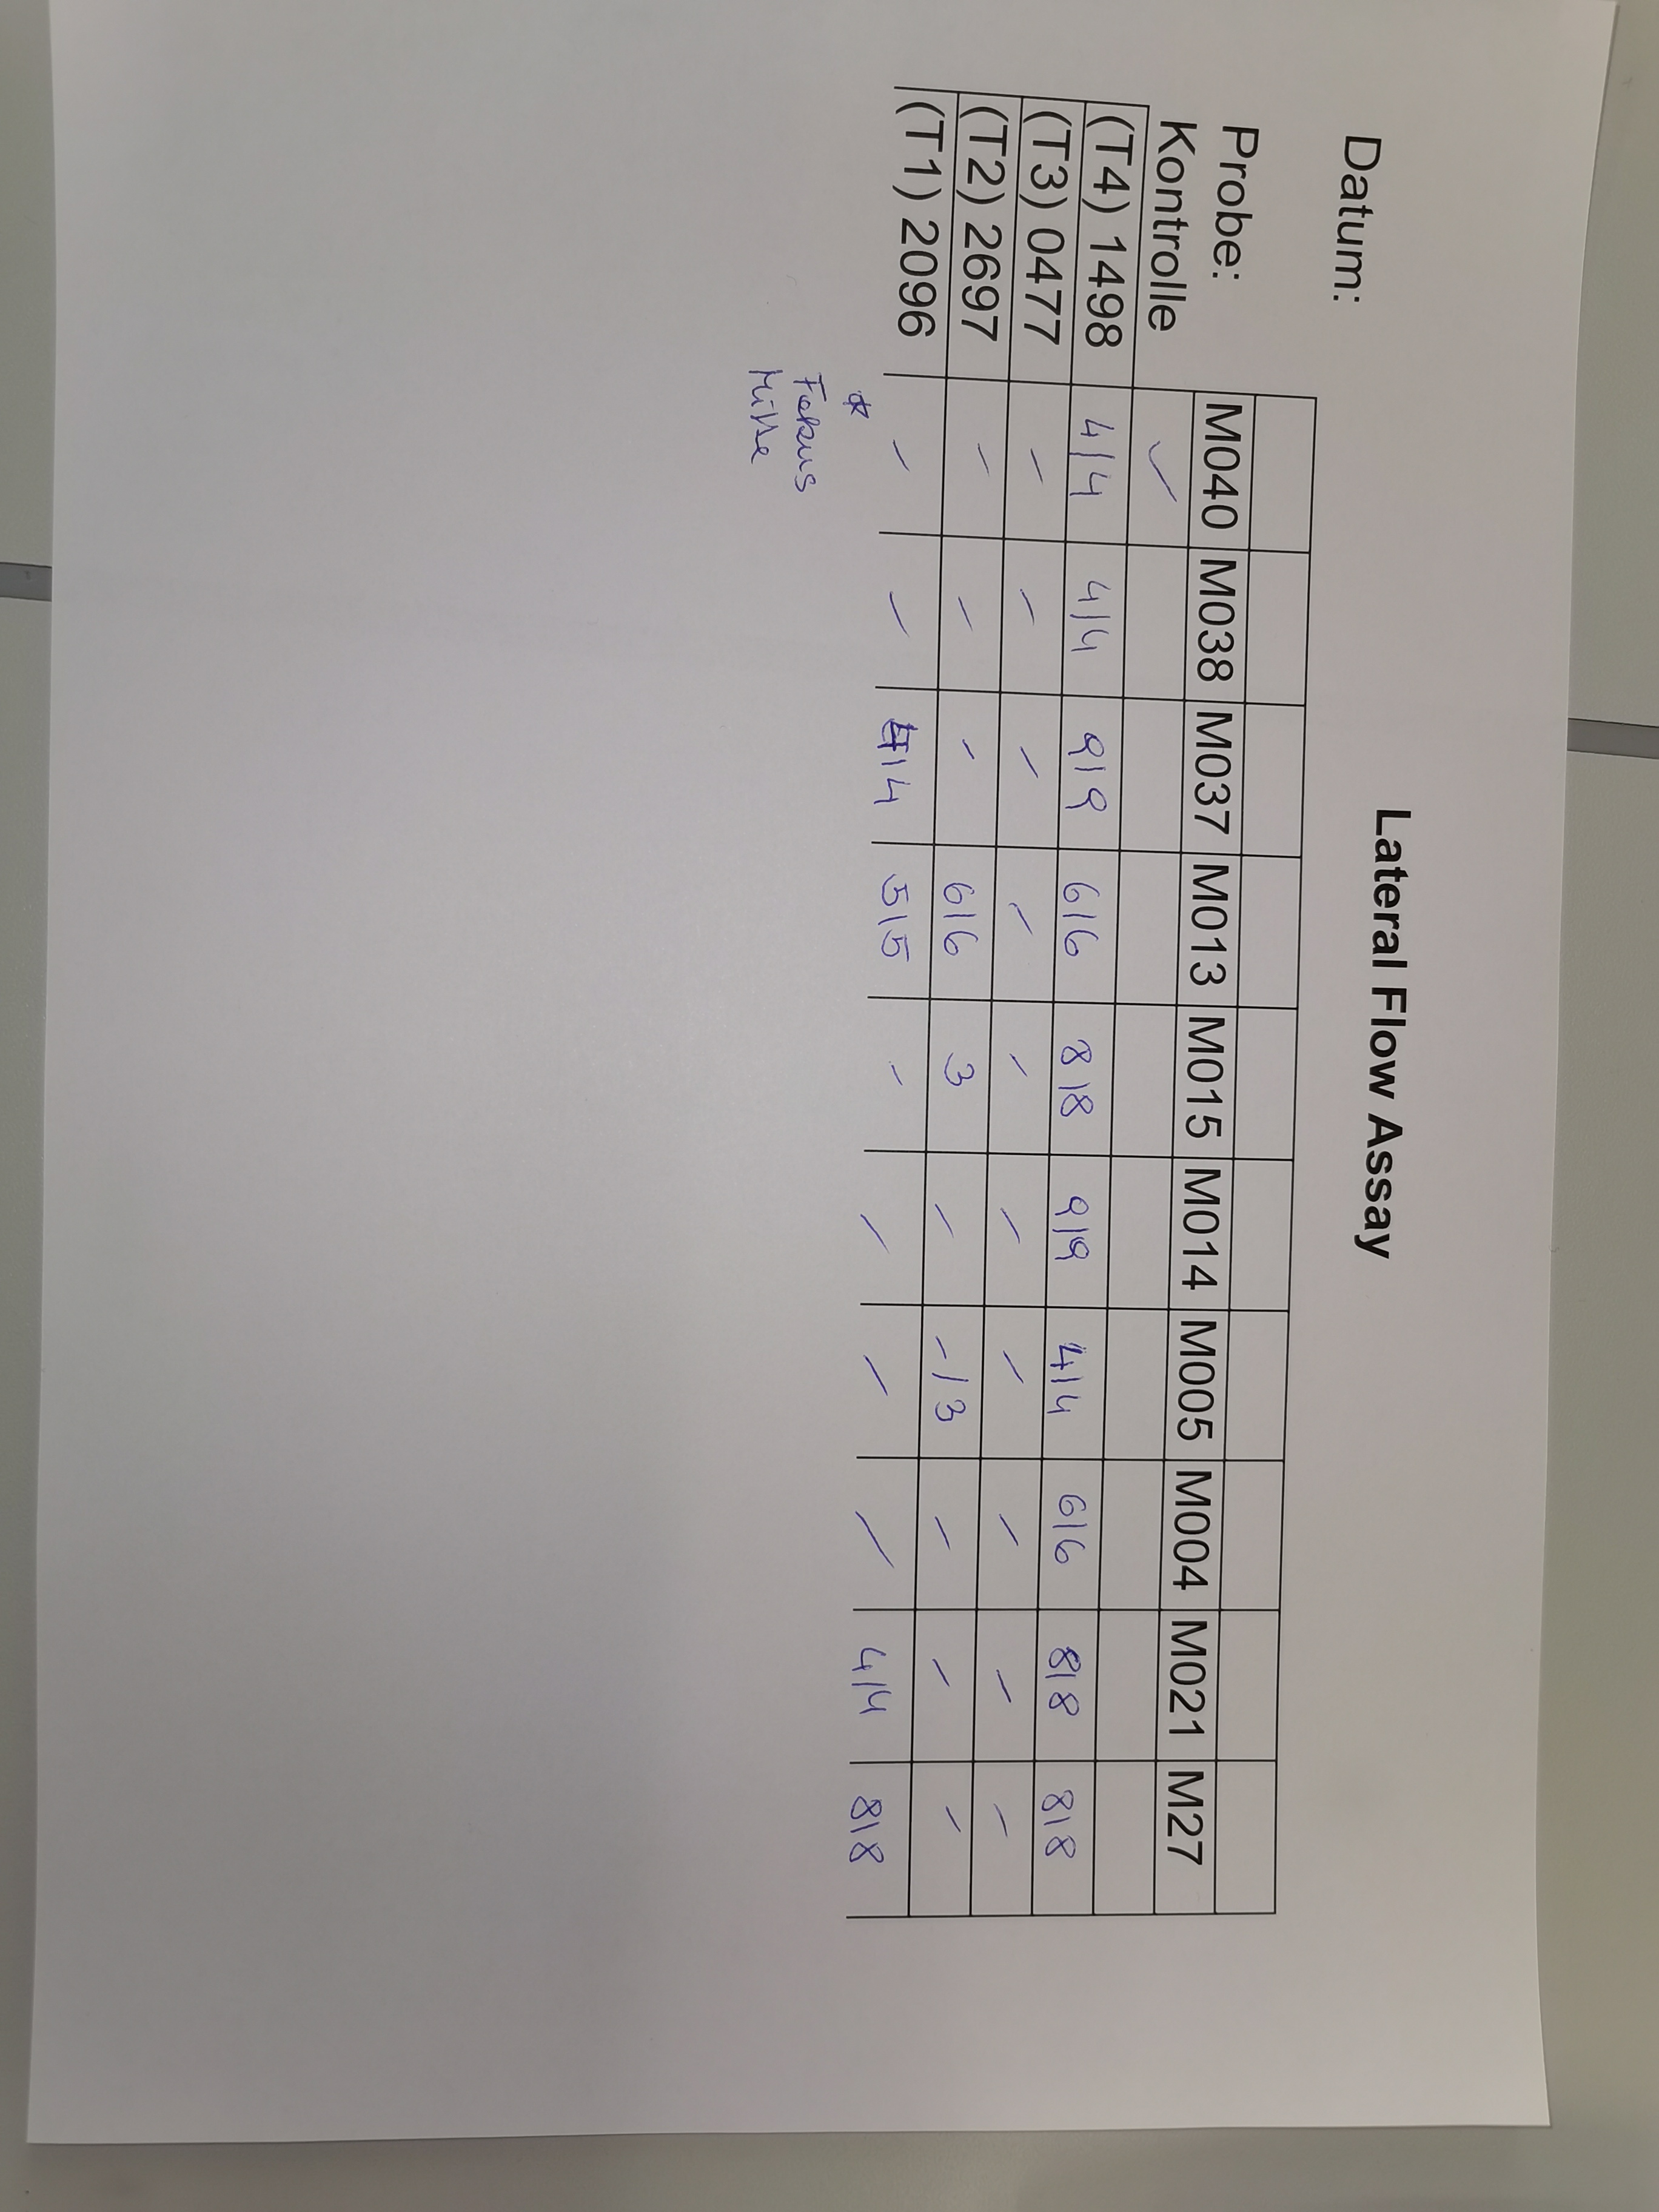 Lateral Flow Assay
Datum:
Probe: M040 M038 M037 M013 M015 M014 M005 M004 M021 M27
Kontrolle ✓
(T4) 1498 4/4 4/4 9/9 6/6 8/8 9/9 4/4 6/6 8/8 8/8
(T3) 0477 - - - - - - - - - -
(T2) 2697 - - - 6/6 3 - -/3 - - -
(T1) 2096 - - 4/4 5/5 - - - - 4/4 8/8
*
Fokus
Mitte